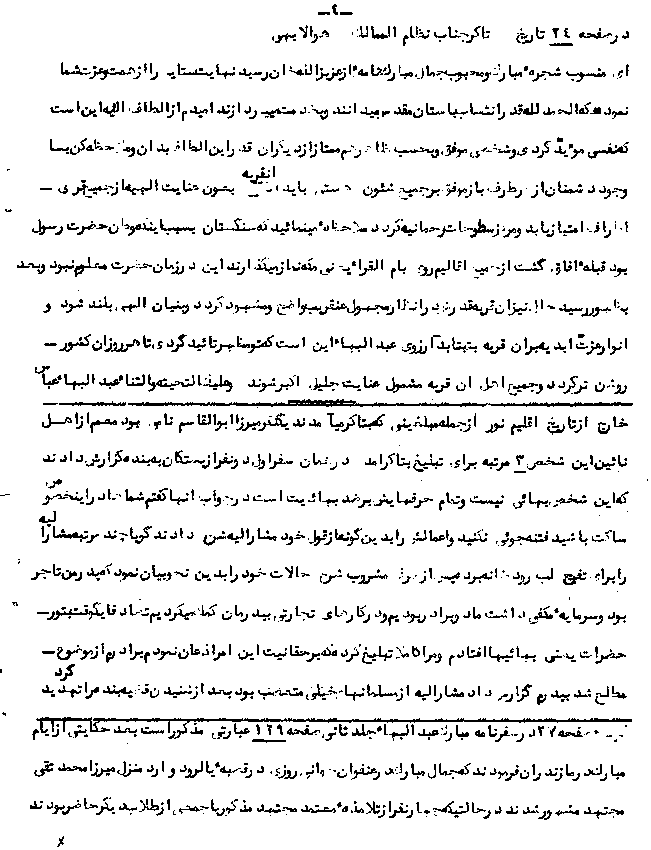 ـ٤ـ
در صفحه ٢٤ تاریخ تاکر جناب نظام الممالک هوالابهی
ای منسوب شجره مبارکه و محبوب جمال مبارک نامه از عزیزالله خان رسید نهایت ستایش را از همت و عزت شما
نموده که الحمدلله قدر انتساب باستان مقدس میدانند و بخدمت میپردازند امیدم از الطاف الهیه این است
که نفسی مؤید گردی و شخصی موفق و بحسب ظاهر هم ممتاز از دیگران قدر این الطاف بدان و ملاحظه کن بسا
وجود دشمنان از هر طرف باز موفق بر جمیع شئون هستی باید انقریه بعون عنایت الهیه از جمیع قری ـ
اطراف امتیاز یابد و مرکز سطوحات رحمانیه گردد ملاحظه مینمائید که سنگستان بسبب اینکه وطن حضرت رسول
بود قبله آفاق گشت از جمیع اقالیم روی بام القرای یعنی مکه نماز میگذارند این در زمان حضرت معلوم نبود و بعد
بظهور رسید حال نیز آن قریه قدرش در انظار مجهول عنقریب واضح و مشهود گردد و بنیان الهی بلند شود و
انوار عزت ابدیه بر آن قریه بتابد آرزوی عبدالبهاء این است که تو مظهر تائید گردی تا هر روز آن کشور ـ
روشن تر گردد و جمیع اهل آن قریه مشمول عنایت جلیل اکبر شوند وعلیک التحیة والثناء عبدالبهاء عباس
خارج از تاریخ اقلیم نور از جمله مبلغینی که بتاکر میآمدند یکنفر میرزا ابوالقاسم نامی بود معمم از اهل
نائین این شخص ٣ مرتبه برای تبلیغ بتاکر آمد در همان سفر اول دو نفر از بستگان به بنده گزارش دادند
که این شخص بهائی نیست و تمام حرفهایش بر ضد بهائیت است در جواب آنها گفتم شما ها در اینخصوص
ساکت باشید فتنه جوئی نکنید و اعمالش را بدین گونه از قول خود مشارالیه شرح دادند گویا چند مرتبه مشارالیه
را برای تفریح لب رودخانه برده پس از صرف مشروب شرح حالات خود را بدین نحو بیان نمود که پدر من تاجر
بود و سرمایه مکفی داشت ما دو برادر بودیم و در کارهای تجارتی بپدرمان کمک میکردیم تصادفا یکوقت بتور ـ
حضرات یعنی بهائیها افتادم و مرا کاملا تبلیغ کرده که بر حقانیت این امر اذعان نمودم برادرم از موضوع ـ
مطلع شد بپدرم گزارش داد مشارالیه از مسلمانهای خیلی متعصب بود بعد از شنیدن قضیه بنده مرا تهدید کرد
صفحه ٢٧ در سفرنامه مبارک عبدالبهاء جلد ثانی صفحه ١٢٩ عبارتی مذکور است بعد حکایتی از ایام
مبارک در مازندران فرمودند که جمال مبارک در عنفوان جوانی روزی در قصبه یالرود وارد منزل میرزا محمد تقی
مجتهد مشهور شدند در حالتیکه چهار نفر از تلامذه معتمد مجتهد مذکور با جمعی از طلاب دیگر حاضر بودند